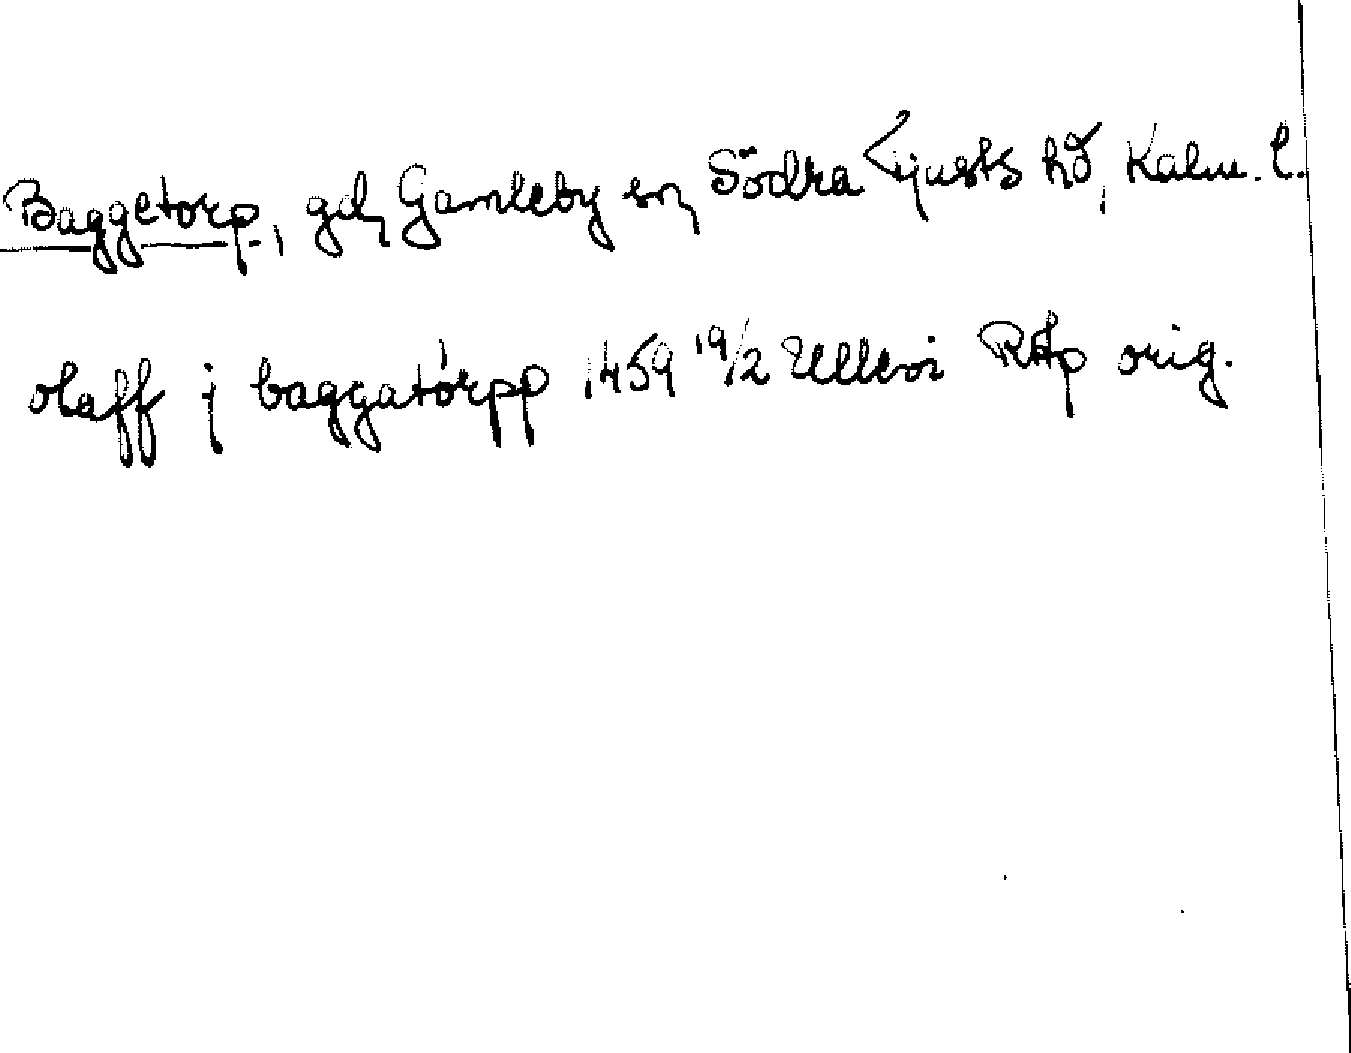 Baggetorp, gd, Gamleby sn, Södra Tjusts hd, Kalm. l.
olaff j baggatorpp 1459 19/2 Ullevi RAp orig.